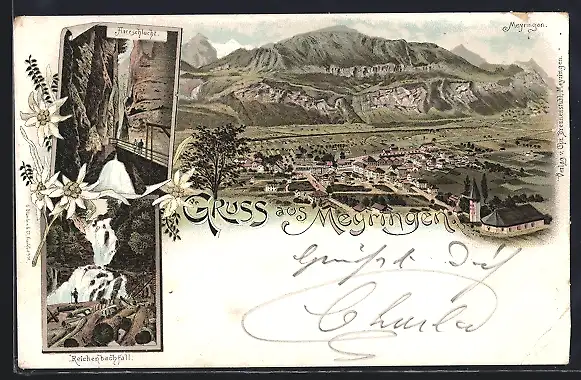 Aareschlucht.
Meyringen.
Gruss aus Meyringen.
Verlag v. Chr. Brennenstuhl, Meyringen.
Grüsst Dich
Charles
Reichenbachfall.